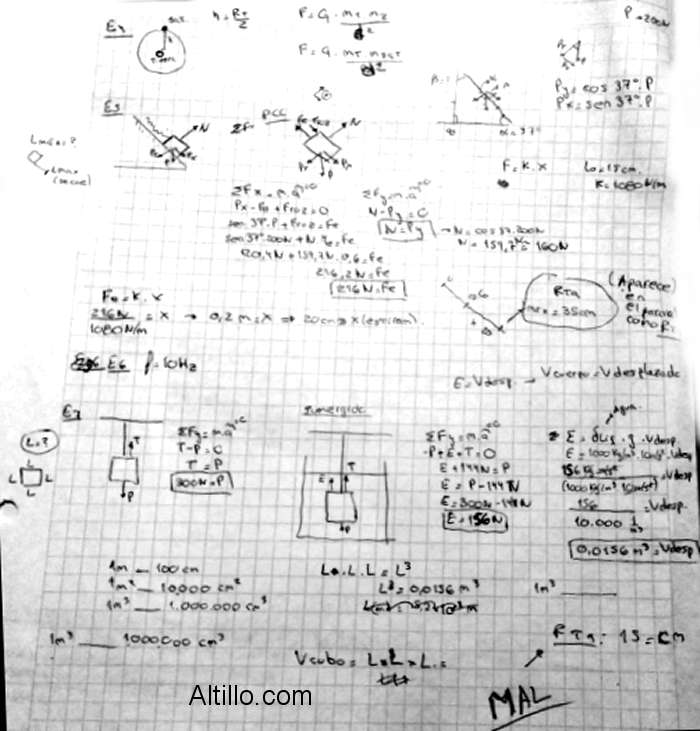 E4
SAT
h = RT/2
F = G. mT m2 / d²
F = G. mT mSAT / d²
P = 200N
Py = cos 37°. P
Px = sen 37°. P
α = 37°
E5
PCL
N
N
P
Px
Lmax = ?
Lmax
F = K. X
Lo = 15 cm
K = 1080 N/m
ΣFx = m. a
Px - Fe + Froz = 0
sen 37°. P + Froz = Fe
sen 37°. 200N + N. = Fe
120,4N + 159,7N. 0,6 = Fe
216,2N = Fe
216N = Fe
ΣFy = m. a
N - Py = 0
N = Py → N = cos 37. 200N
N = 159,7N ≅ 160N
Fe = K. X
216N / 1080 N/m = X → 0,2 m = X ⇒ 20 cm = X
RTA
max = 35cm
(Aparece en el parcial como R1
E6 f = 10Hz
E = Vdesp. → Vcuerpo = Vdesplazado
E7
L = ?
L
L
L
L
T
P
ΣFy = m. a
T - P = 0
T = P
300N = P
sumergido
E
T
P
ΣFy = m. a
-P + E + T = 0
E + 144N = P
E = P - 144N
E = 300N - 144N
E = 156N
Agua
E = δLiq . g . Vdesp
E = 1000 Kg/m³. 10m/s². Vdesp
156 Kg.m/s² / (1000 Kg/m³. 10m/s²) = Vdesp
156 / 10.000 1/m³ = Vdesp.
0,0156 m³ = Vdesp
1m — 100 cm
1m² — 10.000 cm²
1m³ — 1.000.000 cm³
L. L. L = L³
L³ = 0,0156 m³
1m³
1m³ — 1000.000 cm³
Vcubo = L x L x L =
RTA: 15 = cm
MAL
Altillo.com